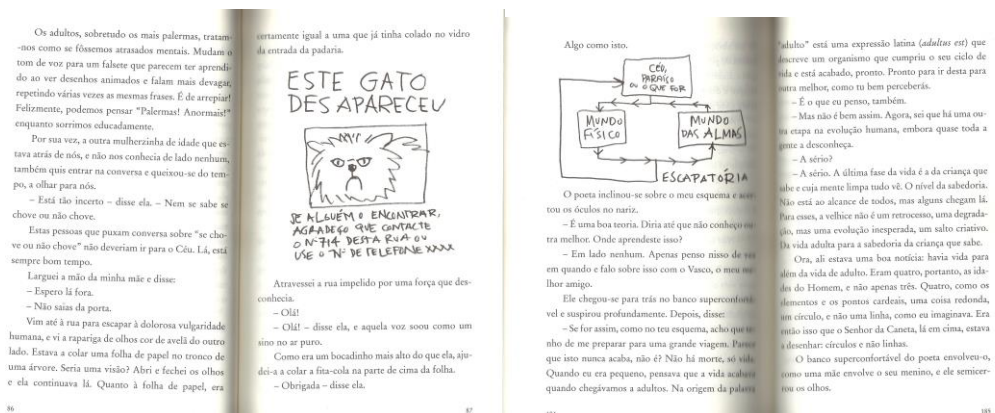 Os adultos, sobretudo os mais palermas, tratam-
-nos como se fôssemos atrasados mentais. Mudam o
tom de voz para um falsete que parecem ter aprendi-
do ao ver desenhos animados e falam mais devagar,
repetindo várias vezes as mesmas frases. É de arrepiar!
Felizmente, podemos pensar "Palermas! Anormais!"
enquanto sorrimos educadamente.
Por sua vez, a outra mulherzinha de idade que es-
tava atrás de nós, e não nos conhecia de lado nenhum,
também quis entrar na conversa e queixou-se do tem-
po, a olhar para nós.
– Está tão incerto – disse ela. – Nem se sabe se
chove ou não chove.
Estas pessoas que puxam conversa sobre "se cho-
ve ou não chove" não deveriam ir para o Céu. Lá, está
sempre bom tempo.
Larguei a mão da minha mãe e disse:
– Espero lá fora.
– Não saias da porta.
Vim até à rua para escapar à dolorosa vulgaridade
humana, e vi a rapariga de olhos cor de avelã do outro
lado. Estava a colar uma folha de papel no tronco de
uma árvore. Seria uma visão? Abri e fechei os olhos
e ela continuava lá. Quanto à folha de papel, era
86
certamente igual a uma que já tinha colado no vidro
da entrada da padaria.
ESTE GATO
DESAPARECEU
SE ALGUÉM O ENCONTRAR,
AGRADEÇO QUE CONTACTE
O Nº 714 DESTA RUA OU
USE O Nº DE TELEFONE XXXX
Atravessei a rua impelido por uma força que des-
conhecia.
– Olá!
– Olá! – disse ela, e aquela voz soou como um
sino no ar puro.
Como era um bocadinho mais alto do que ela, aju-
dei-a a colar a fita-cola na parte de cima da folha.
– Obrigada – disse ela.
87
Algo como isto.
CÉU,
PARAÍSO
OU O QUE FOR
MUNDO
FÍSICO
MUNDO
DAS ALMAS
ESCAPATÓRIA
O poeta inclinou-se sobre o meu esquema e acer-
tou os óculos no nariz.
– É uma boa teoria. Diria até que não conheço ou-
tra melhor. Onde aprendeste isso?
– Em lado nenhum. Apenas penso nisso de vez
em quando e falo sobre isso com o Vasco, o meu me-
lhor amigo.
Ele chegou-se para trás no banco superconfortá-
vel e suspirou profundamente. Depois, disse:
– Se for assim, como no teu esquema, acho que te-
nho de me preparar para uma grande viagem. Parece
que isto nunca acaba, não é? Não há morte, só vida.
Quando eu era pequeno, pensava que a vida acabava
quando chegávamos a adultos. Na origem da palavra
"adulto" está uma expressão latina (adultus est) que
descreve um organismo que cumpriu o seu ciclo de
vida e está acabado, pronto. Pronto para ir desta para
outra melhor, como tu bem perceberás.
– É o que eu penso, também.
– Mas não é bem assim. Agora, sei que há uma ou-
tra etapa na evolução humana, embora quase toda a
gente a desconheça.
– A sério?
– A sério. A última fase da vida é a da criança que
sabe e cuja mente limpa tudo vê. O nível da sabedoria.
Não está ao alcance de todos, mas alguns chegam lá.
Para esses, a velhice não é um retrocesso, uma degrada-
ção, mas uma evolução inesperada, um salto criativo.
Da vida adulta para a sabedoria da criança que sabe.
Ora, ali estava uma boa notícia: havia vida para
além da vida de adulto. Eram quatro, portanto, as ida-
des do Homem, e não apenas três. Quatro, como os
elementos e os pontos cardeais, uma coisa redonda,
um círculo, e não uma linha, como eu imaginava. Era
então isso que o Senhor da Caneta, lá em cima, estava
a desenhar: círculos e não linhas.
O banco superconfortável do poeta envolveu-o,
como uma mãe envolve o seu menino, e ele semicer-
rou os olhos.